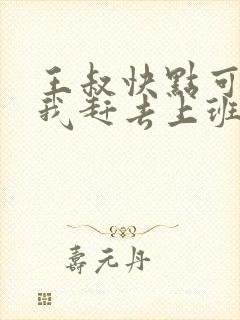 王叔快點可
我赶去上班
壽元丹